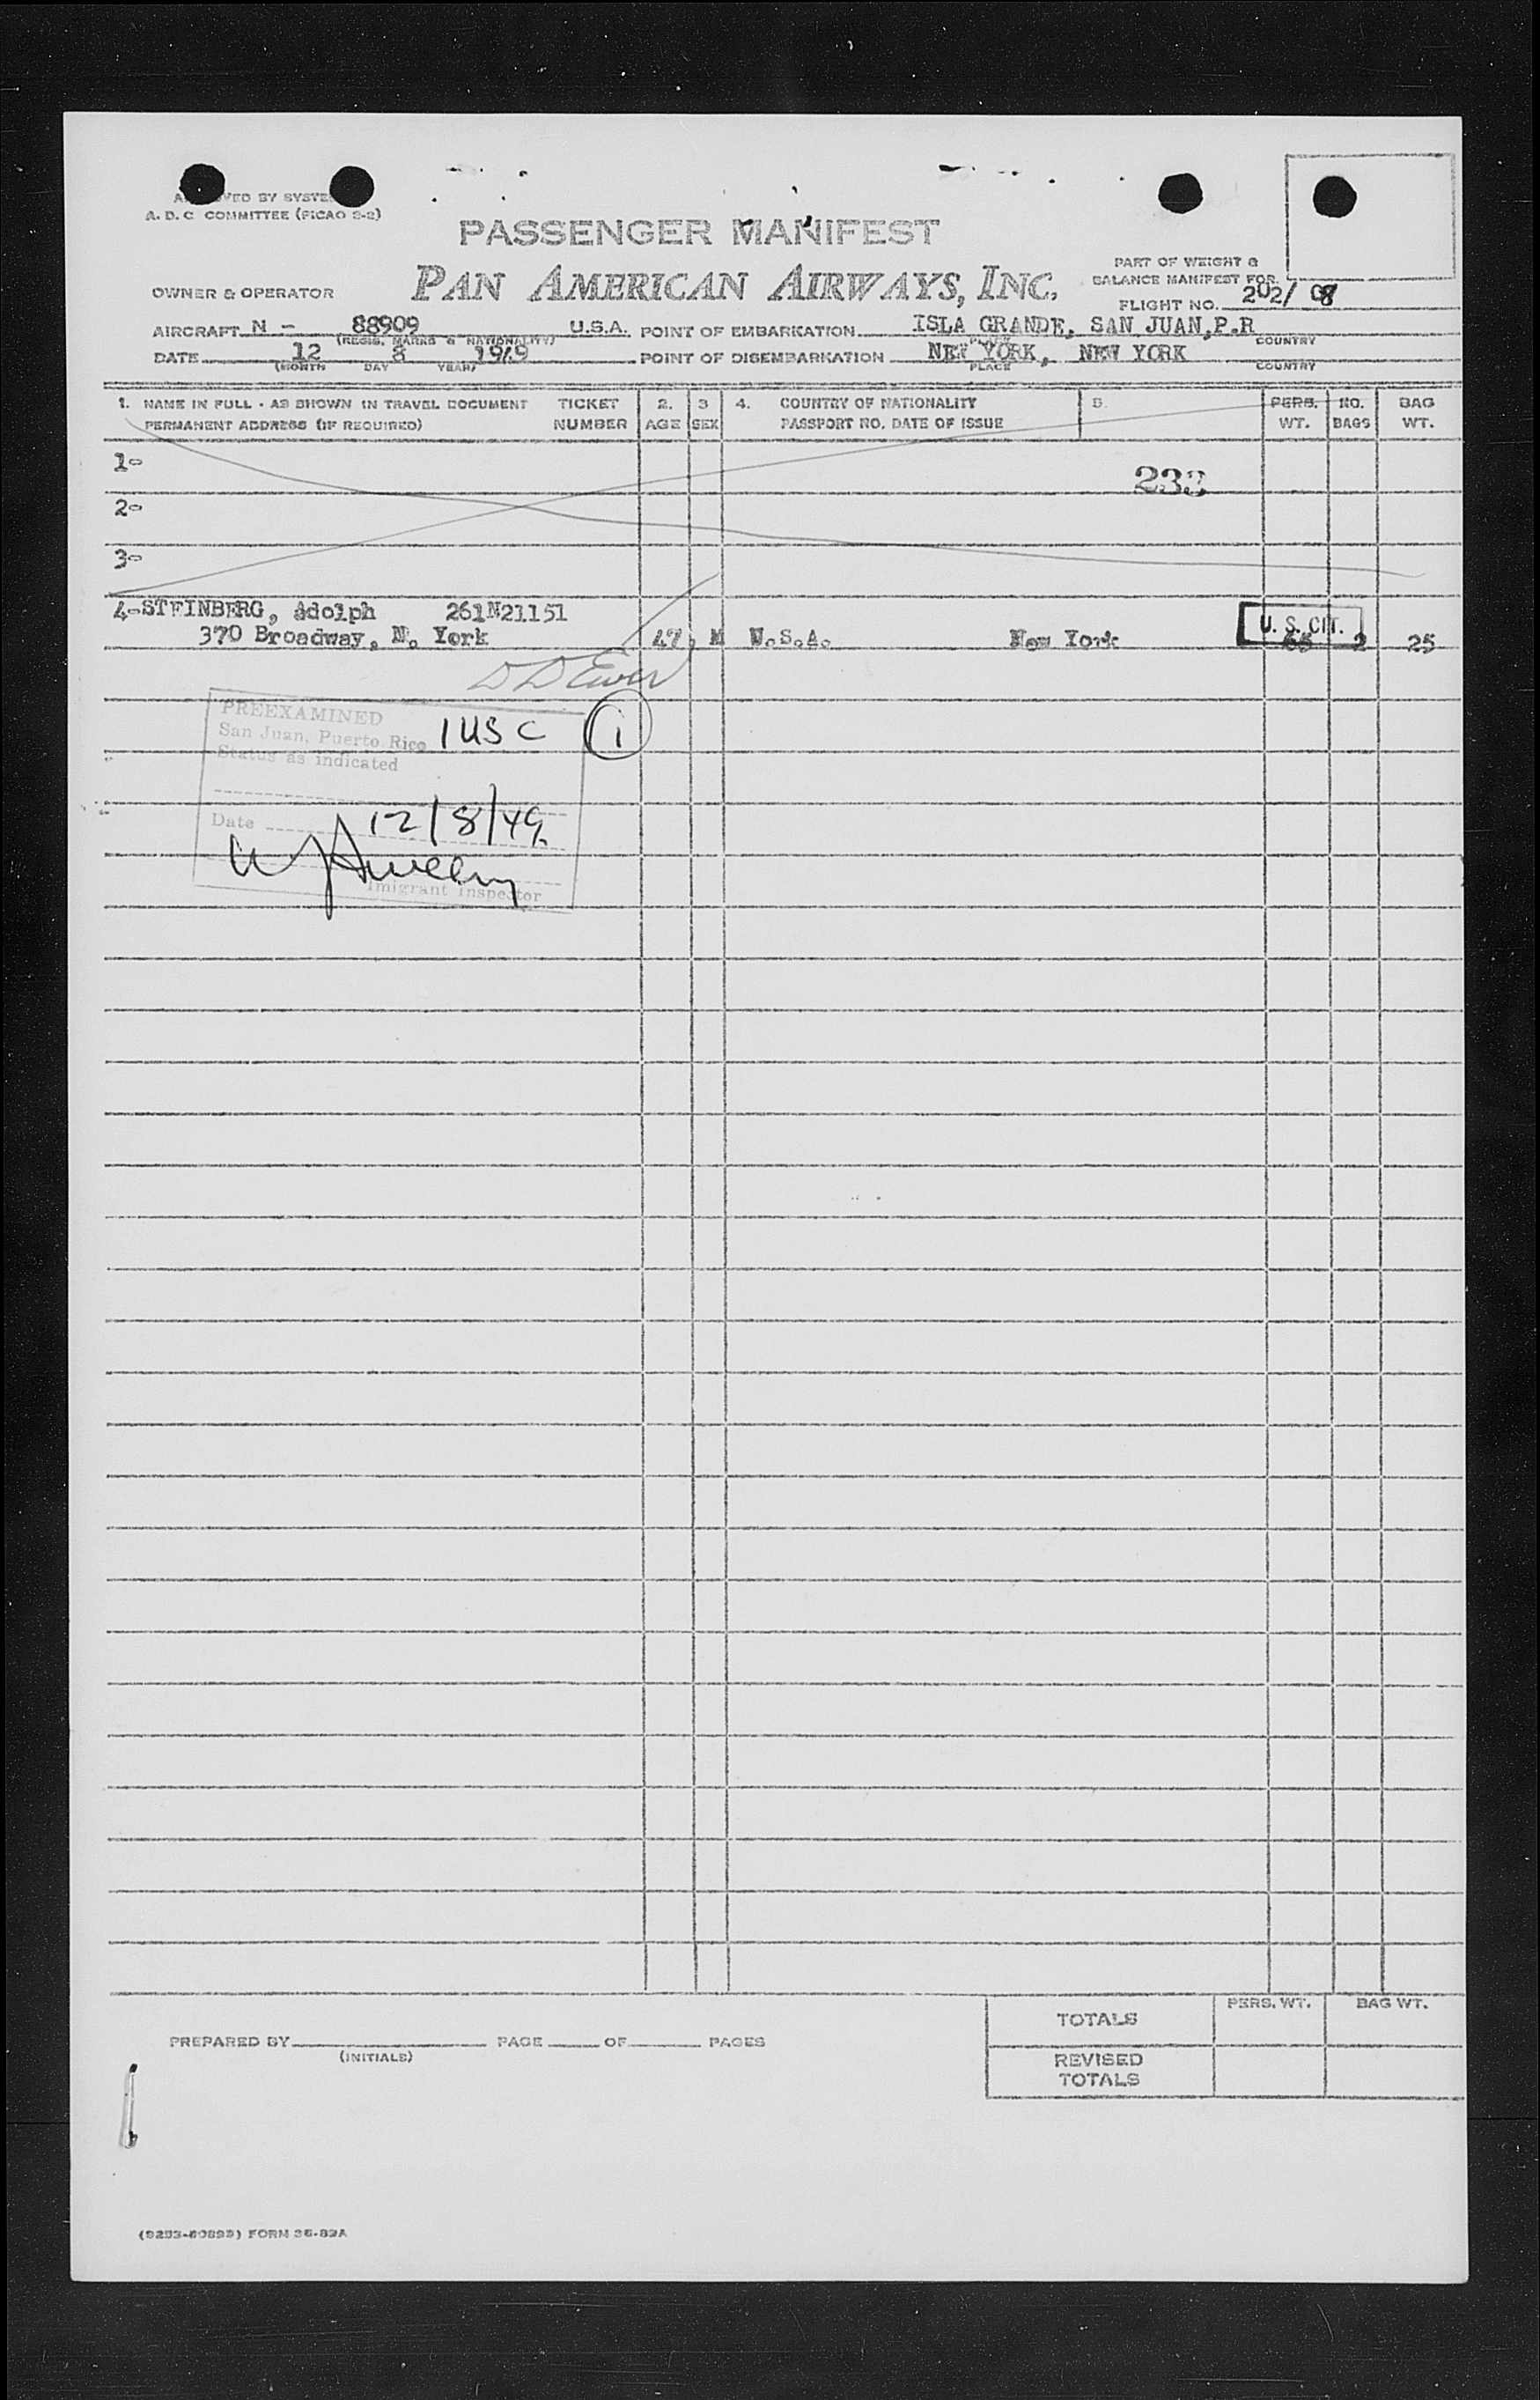 A. D. C COMMITTEE (PICAO 2-2)
PASSENGER MANIFEST
PAN AMERICAN AIRWAYS, INC.
PART OF WEIGHT &
BALANCE MANIFEST FOR
OWNER & OPERATOR
FLIGHT NO. 202/ 08
AIRCRAFT N - 88909 U.S.A. POINT OF EMBARKATION ISLA GRANDE, SAN JUAN, P.R
(REGIS. MARKS & NATIONALITY) COUNTRY
DATE 12 8 1949 POINT OF DISEMBARKATION NEW YORK, NEW YORK
(MONTH DAY YEAR) PLACE COUNTRY
1. NAME IN FULL - AS SHOWN IN TRAVEL DOCUMENT TICKET 2. 3 4. COUNTRY OF NATIONALITY 5. PERS. NO. BAG
PERMANENT ADDRESS (IF REQUIRED) NUMBER AGE SEX PASSPORT NO. DATE OF ISSUE WT. BAGS WT.
1-
233
2-
3-
4-STEINBERG, Adolph 261N21151
U. S. CIT.
370 Broadway, N. York 47 M U.S.A. New York 2 25
PREEXAMINED
San Juan, Puerto Rico 1 USC 1
Status as indicated
Date 12/8/49
Imigrant Inspector
TOTALS PERS. WT. BAG WT.
PREPARED BY PAGE OF PAGES
(INITIALS)
REVISED
TOTALS
FORM 36-82A